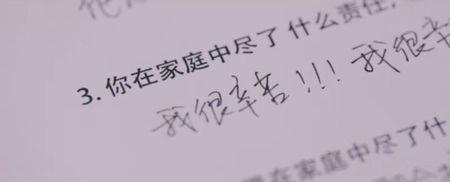 3. 你在家庭中尽了什么责任,
我很辛苦!!! 我很辛
在家庭中尽了什